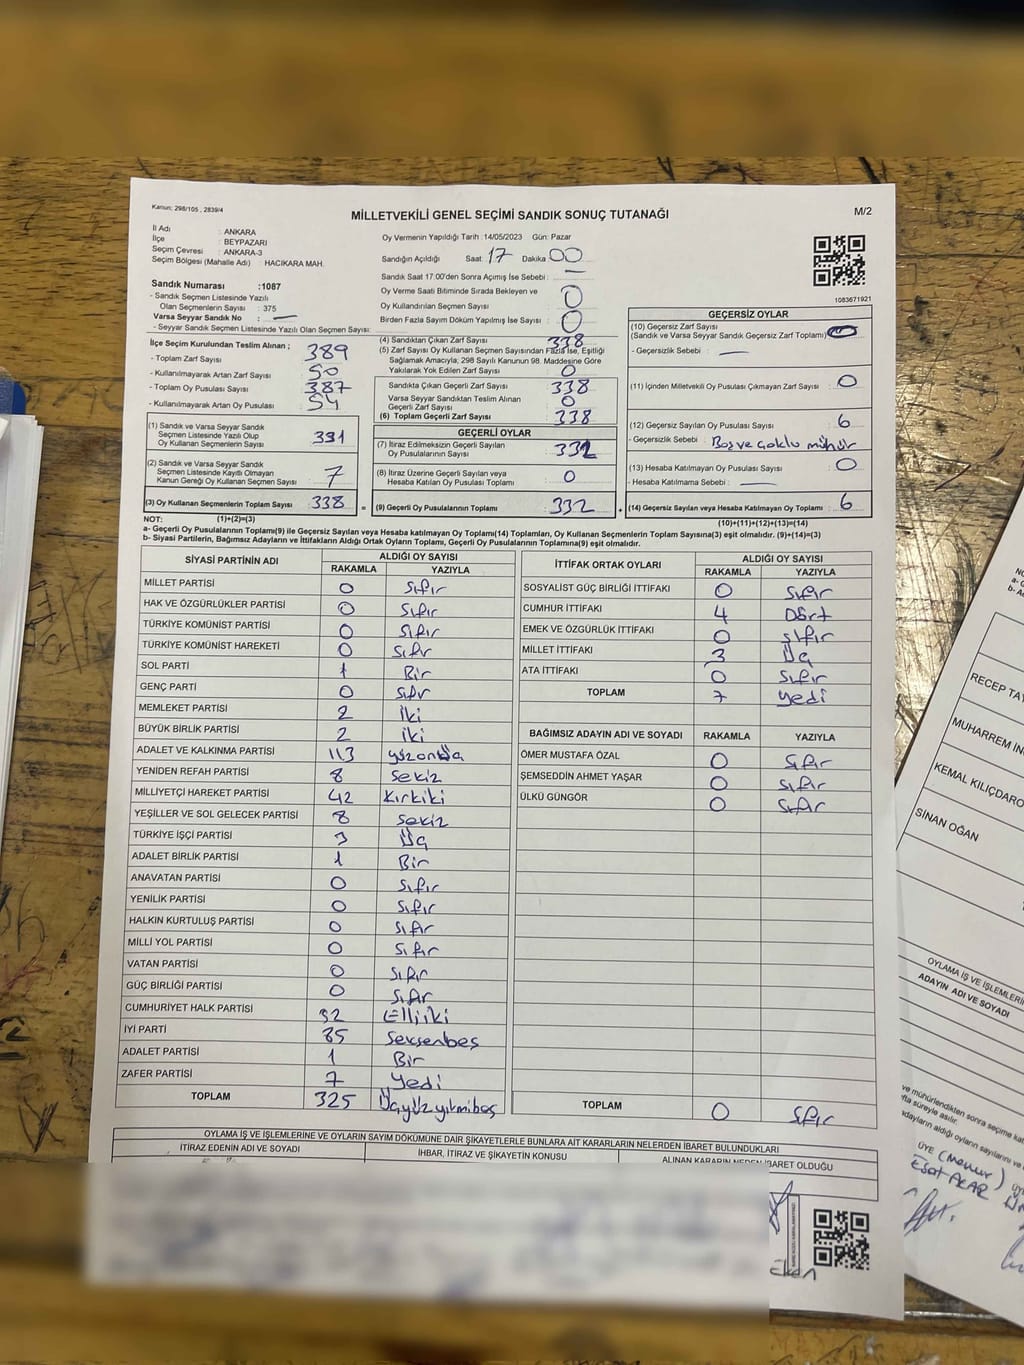 Kanun: 298/105 , 2839/4
MİLLETVEKİLİ GENEL SEÇİMİ SANDIK SONUÇ TUTANAĞI
M/2
İl Adı : ANKARA
İlçe : BEYPAZARI
Seçim Çevresi : ANKARA-3
Seçim Bölgesi (Mahalle Adı) : HACIKARA MAH.
Sandık Numarası :1087
- Sandık Seçmen Listesinde Yazılı
Olan Seçmenlerin Sayısı : 375
Varsa Seyyar Sandık No : —
- Seyyar Sandık Seçmen Listesinde Yazılı Olan Seçmen Sayısı:
Oy Vermenin Yapıldığı Tarih :14/05/2023 Gün: Pazar
Sandığın Açıldığı Saat: 17 Dakika: 00
Sandık Saat 17.00'den Sonra Açılmış İse Sebebi : —
Oy Verme Saati Bitiminde Sırada Bekleyen ve
Oy Kullandırılan Seçmen Sayısı 0
Birden Fazla Sayım Döküm Yapılmış İse Sayısı 0
1083671921
İlçe Seçim Kurulundan Teslim Alınan ;
- Toplam Zarf Sayısı 389
- Kullanılmayarak Artan Zarf Sayısı 50
- Toplam Oy Pusulası Sayısı 387
- Kullanılmayarak Artan Oy Pusulası 54
(1) Sandık ve Varsa Seyyar Sandık
Seçmen Listesinde Yazılı Olup
Oy Kullanan Seçmenlerin Sayısı 331
(2) Sandık ve Varsa Seyyar Sandık
Seçmen Listesinde Kayıtlı Olmayan
Kanun Gereği Oy Kullanan Seçmen Sayısı 7
(3) Oy Kullanan Seçmenlerin Toplam Sayısı 338
(4) Sandıktan Çıkan Zarf Sayısı 338
(5) Zarf Sayısı Oy Kullanan Seçmen Sayısından Fazla İse, Eşitliği
Sağlamak Amacıyla; 298 Sayılı Kanunun 98. Maddesine Göre
Yakılarak Yok Edilen Zarf Sayısı 0
Sandıkta Çıkan Geçerli Zarf Sayısı 338
Varsa Seyyar Sandıktan Teslim Alınan
Geçerli Zarf Sayısı 0
(6) Toplam Geçerli Zarf Sayısı 338
GEÇERLİ OYLAR
(7) İtiraz Edilmeksizin Geçerli Sayılan
Oy Pusulalarının Sayısı 332
(8) İtiraz Üzerine Geçerli Sayılan veya
Hesaba Katılan Oy Pusulası Toplamı 0
= (9) Geçerli Oy Pusulalarının Toplamı 332
GEÇERSİZ OYLAR
(10) Geçersiz Zarf Sayısı
(Sandık ve Varsa Seyyar Sandık Geçersiz Zarf Toplamı)
- Geçersizlik Sebebi : —
(11) İçinden Milletvekili Oy Pusulası Çıkmayan Zarf Sayısı 0
(12) Geçersiz Sayılan Oy Pusulası Sayısı 6
- Geçersizlik Sebebi : Boş ve çoklu mühür
(13) Hesaba Katılmayan Oy Pusulası Sayısı 0
- Hesaba Katılmama Sebebi : —
+ (14) Geçersiz Sayılan veya Hesaba Katılmayan Oy Toplamı 6
NOT: (1)+(2)=(3)
(10)+(11)+(12)+(13)=(14)
a- Geçerli Oy Pusulalarının Toplamı(9) ile Geçersiz Sayılan veya Hesaba katılmayan Oy Toplamı(14) Toplamları, Oy Kullanan Seçmenlerin Toplam Sayısına(3) eşit olmalıdır. (9)+(14)=(3)
b- Siyasi Partilerin, Bağımsız Adayların ve İttifakların Aldığı Ortak Oyların Toplamı, Geçerli Oy Pusulalarının Toplamına(9) eşit olmalıdır.
SİYASİ PARTİNİN ADI ALDIĞI OY SAYISI
RAKAMLA YAZIYLA
MİLLET PARTİSİ 0 Sıfır
HAK VE ÖZGÜRLÜKLER PARTİSİ 0 Sıfır
TÜRKİYE KOMÜNİST PARTİSİ 0 Sıfır
TÜRKİYE KOMÜNİST HAREKETİ 0 Sıfır
SOL PARTİ 1 Bir
GENÇ PARTİ 0 Sıfır
MEMLEKET PARTİSİ 2 İki
BÜYÜK BİRLİK PARTİSİ 2 İki
ADALET VE KALKINMA PARTİSİ 113 yüzonüç
YENİDEN REFAH PARTİSİ 8 Sekiz
MİLLİYETÇİ HAREKET PARTİSİ 42 Kırkiki
YEŞİLLER VE SOL GELECEK PARTİSİ 8 Sekiz
TÜRKİYE İŞÇİ PARTİSİ 3 Üç
ADALET BİRLİK PARTİSİ 1 Bir
ANAVATAN PARTİSİ 0 Sıfır
YENİLİK PARTİSİ 0 Sıfır
HALKIN KURTULUŞ PARTİSİ 0 Sıfır
MİLLİ YOL PARTİSİ 0 Sıfır
VATAN PARTİSİ 0 Sıfır
GÜÇ BİRLİĞİ PARTİSİ 0 Sıfır
CUMHURİYET HALK PARTİSİ 52 Elliiki
İYİ PARTİ 85 Seksenbeş
ADALET PARTİSİ 1 Bir
ZAFER PARTİSİ 7 Yedi
TOPLAM 325 Üçyüzyirmibeş
İTTİFAK ORTAK OYLARI ALDIĞI OY SAYISI
RAKAMLA YAZIYLA
SOSYALİST GÜÇ BİRLİĞİ İTTİFAKI 0 Sıfır
CUMHUR İTTİFAKI 4 Dört
EMEK VE ÖZGÜRLÜK İTTİFAKI 0 Sıfır
MİLLET İTTİFAKI 3 Üç
ATA İTTİFAKI 0 Sıfır
TOPLAM 7 Yedi
BAĞIMSIZ ADAYIN ADI VE SOYADI RAKAMLA YAZIYLA
ÖMER MUSTAFA ÖZAL 0 Sıfır
ŞEMSEDDİN AHMET YAŞAR 0 Sıfır
ÜLKÜ GÜNGÖR 0 Sıfır
TOPLAM 0 Sıfır
OYLAMA İŞ VE İŞLEMLERİNE VE OYLARIN SAYIM DÖKÜMÜNE DAİR ŞİKAYETLERLE BUNLARA AİT KARARLARIN NELERDEN İBARET BULUNDUKLARI
İTİRAZ EDENİN ADI VE SOYADI İHBAR, İTİRAZ VE ŞİKAYETİN KONUSU ALINAN KARARIN NEDEN İBARET OLDUĞU
RECEP TA
MUHARREM İN
KEMAL KILIÇDARO
SİNAN OĞAN
OYLAMA İŞ VE İŞLEMLERİN
ADAYIN ADI VE SOYADI
ve mühürlendikten sonra seçime kat
fta süreyle asılır.
adayların aldığı oyların sayılarını ve
ÜYE (Memur)
Esat ACAR